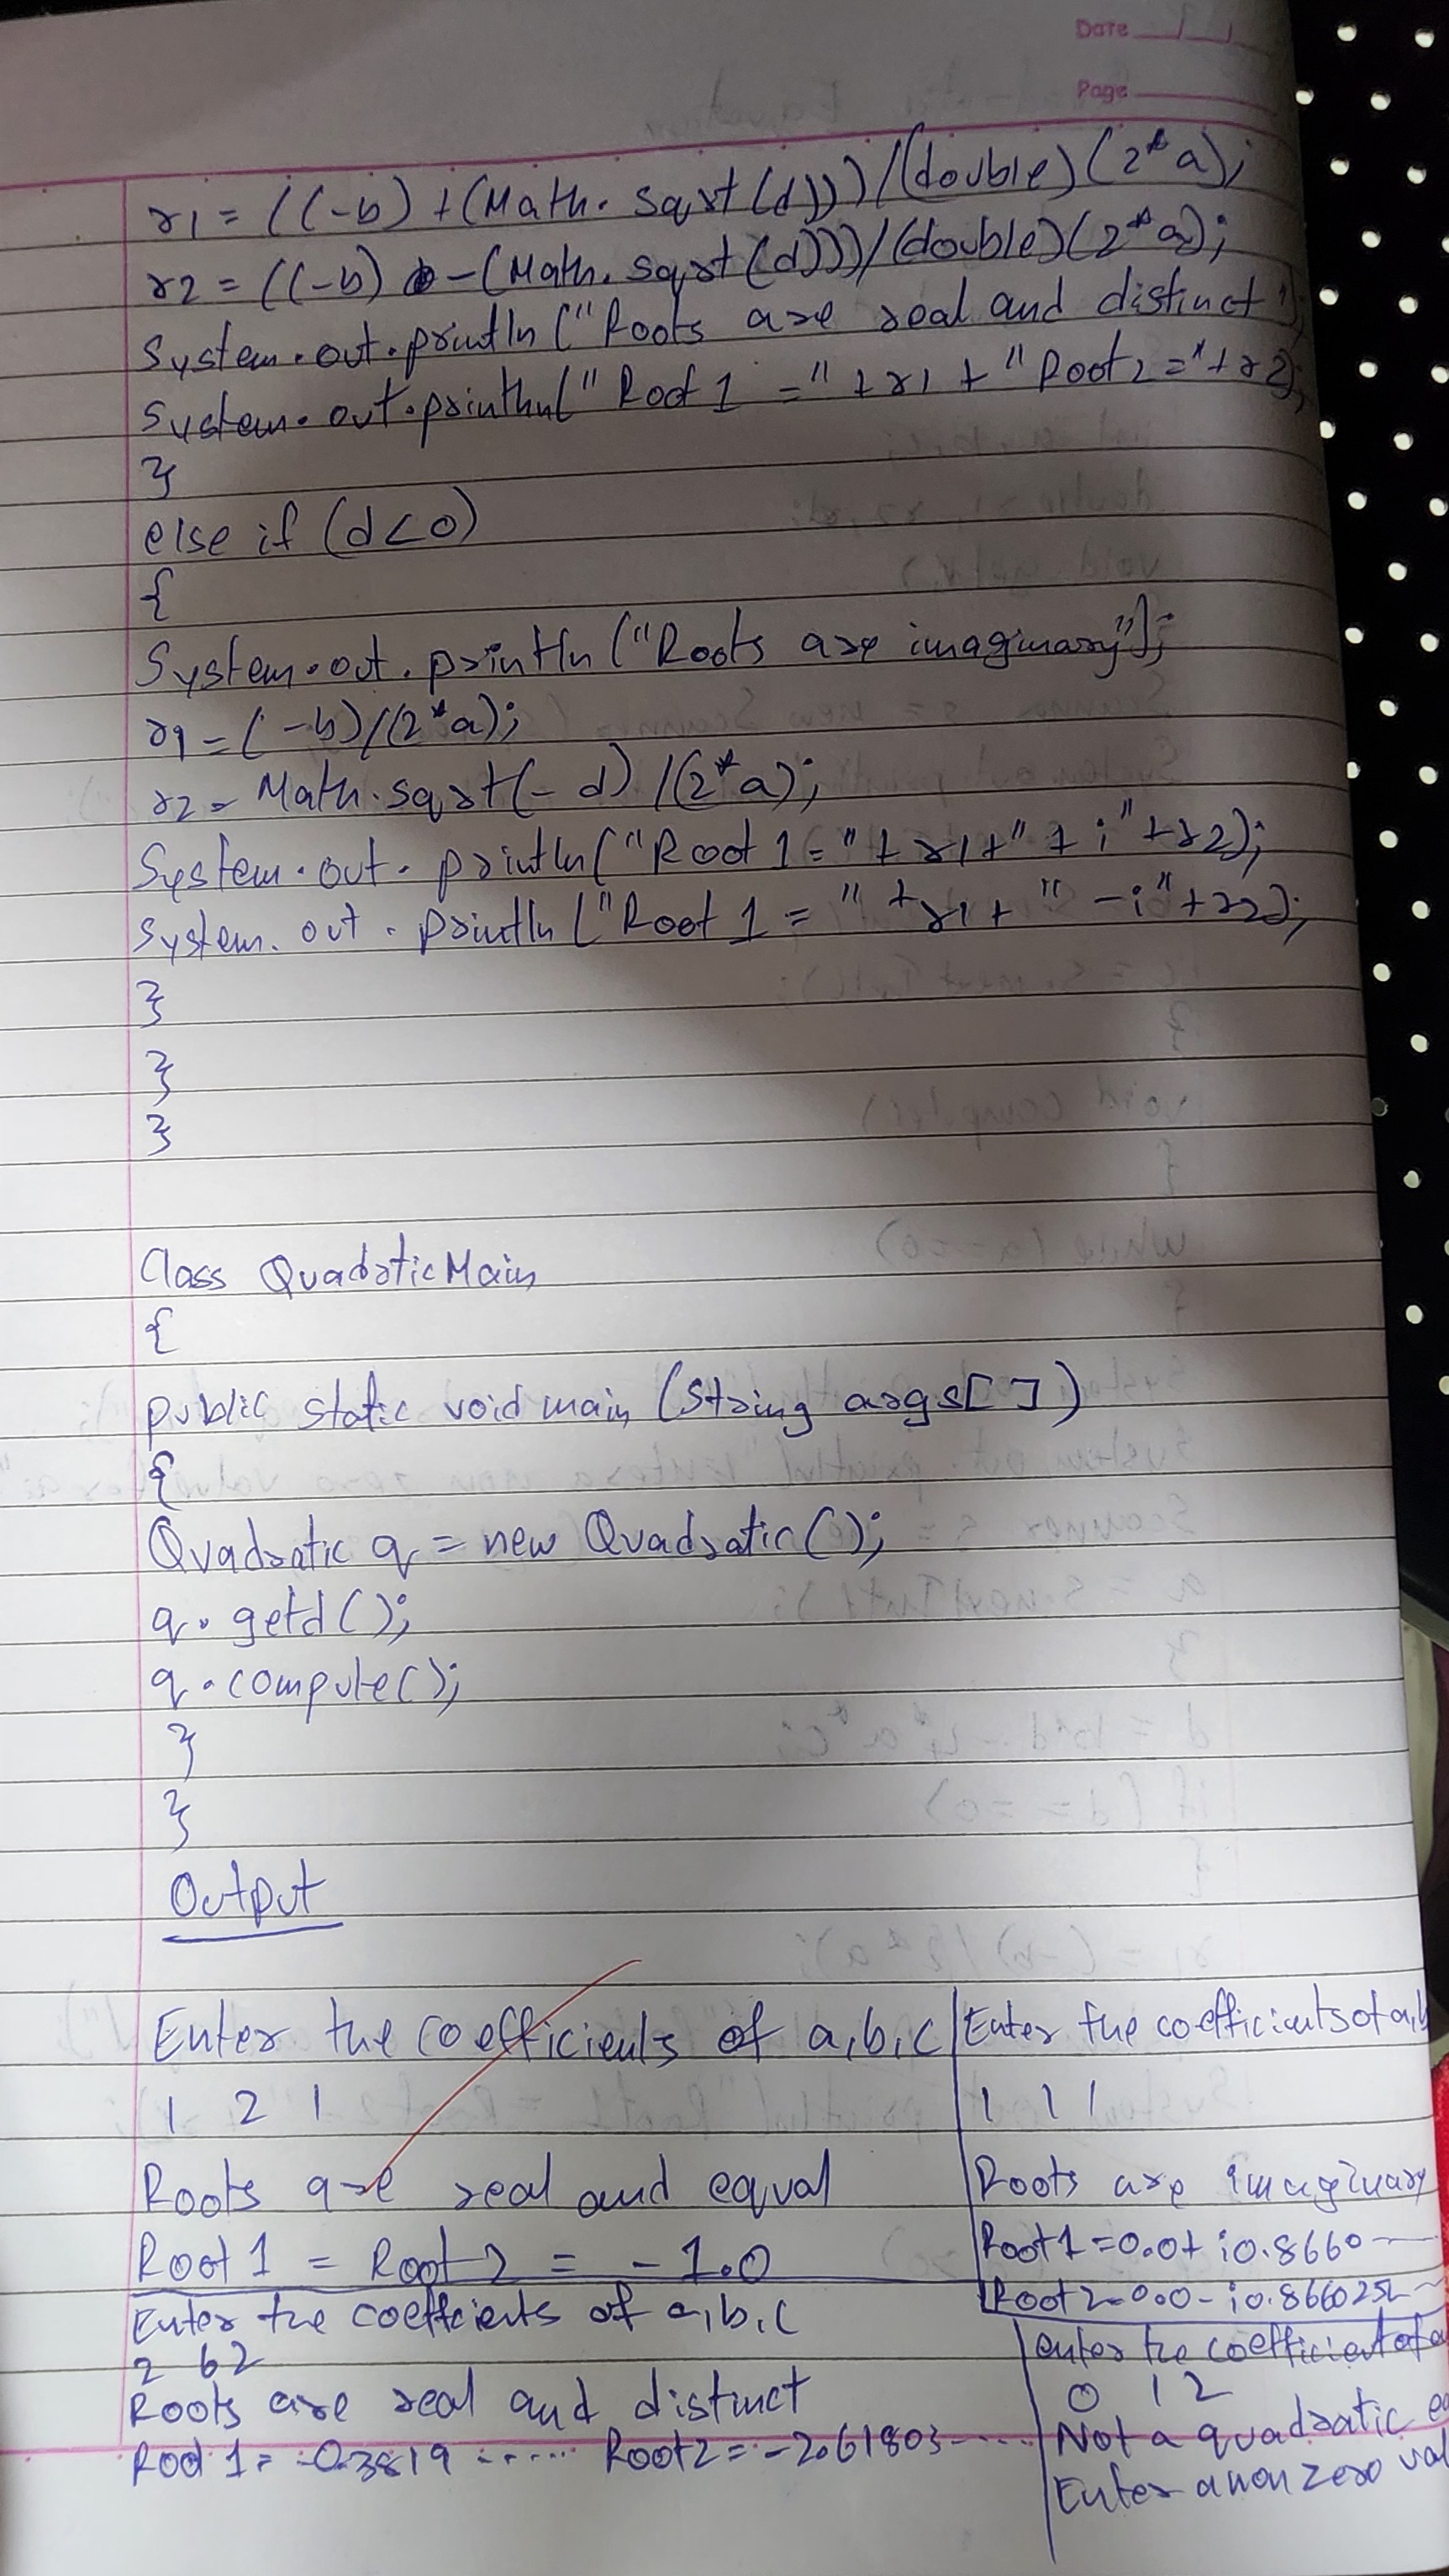 Date
Page
r1 = ((-b) + (Math. sqrt (d)))/(double) (2*a);
r2 = ((-b) - (Math. sqrt (d)))/(double)(2*a);
System.out.println ("Roots are real and distinct");
System.out.println(" Root 1 =" + r1 + " Root 2 =" + r2);
}
else if (d<0)
{
System.out.println ("Roots are imaginary");
r1 = (-b)/(2*a);
r2 = Math.sqrt(-d) /(2*a);
System.out. println("Root 1 = "+ r1+" + i"+r2);
System. out. println ("Root 1 = " +r1+ " -i"+r2);
}
}
}
Class QuadraticMain
{
public static void main (String args[ ])
{
Quadratic q = new Quadratic ();
q. getd ();
q. compute();
}
}
Output
Enter the coefficients of a,b,c
1 2 1
Roots are real and equal
Root 1 = Root 2 = -1.0
Enter the coeffcients of a,b,c
2 6 2
Roots are real and distinct
Root 1 = -0.3819 ...... Root 2 = -2.61803-....
Enter the coefficients of a,b
1 1 1
Roots are imaginary
Root 1 = 0.0+ i0.8660
Root 2 = 0.0 - i0.8660252
enter the coefficient of a
0 1 2
Not a quadratic
Enter a non zero val